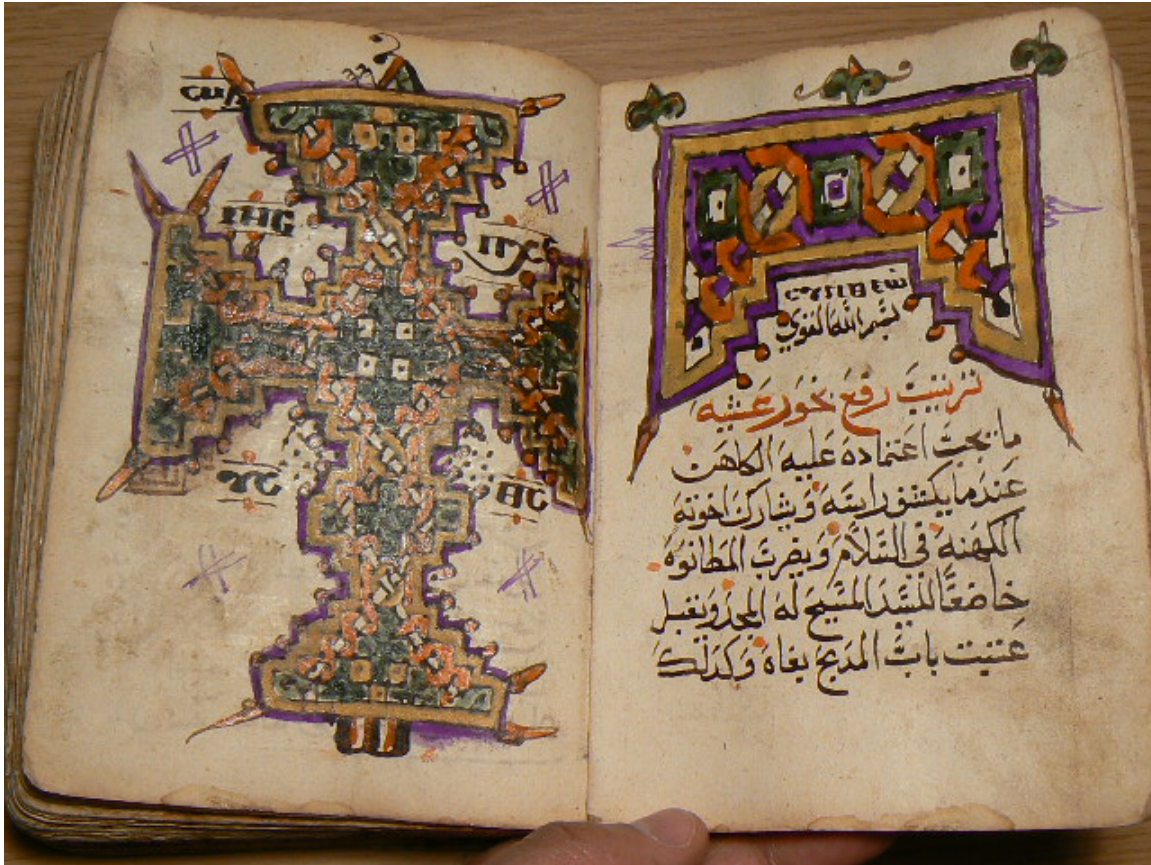 بسم الله القوي
ترتيب رفع بخور عشيه
ما يجب اعتماده عليه الكاهن
عندما يكشف راسه ويشارك اخوته
الكهنه في السلام ويضرب المطانوه
خاضعًا للسيد المسيح له المجد ويقبل
عتبت باب المدبح بفاه وكدلك